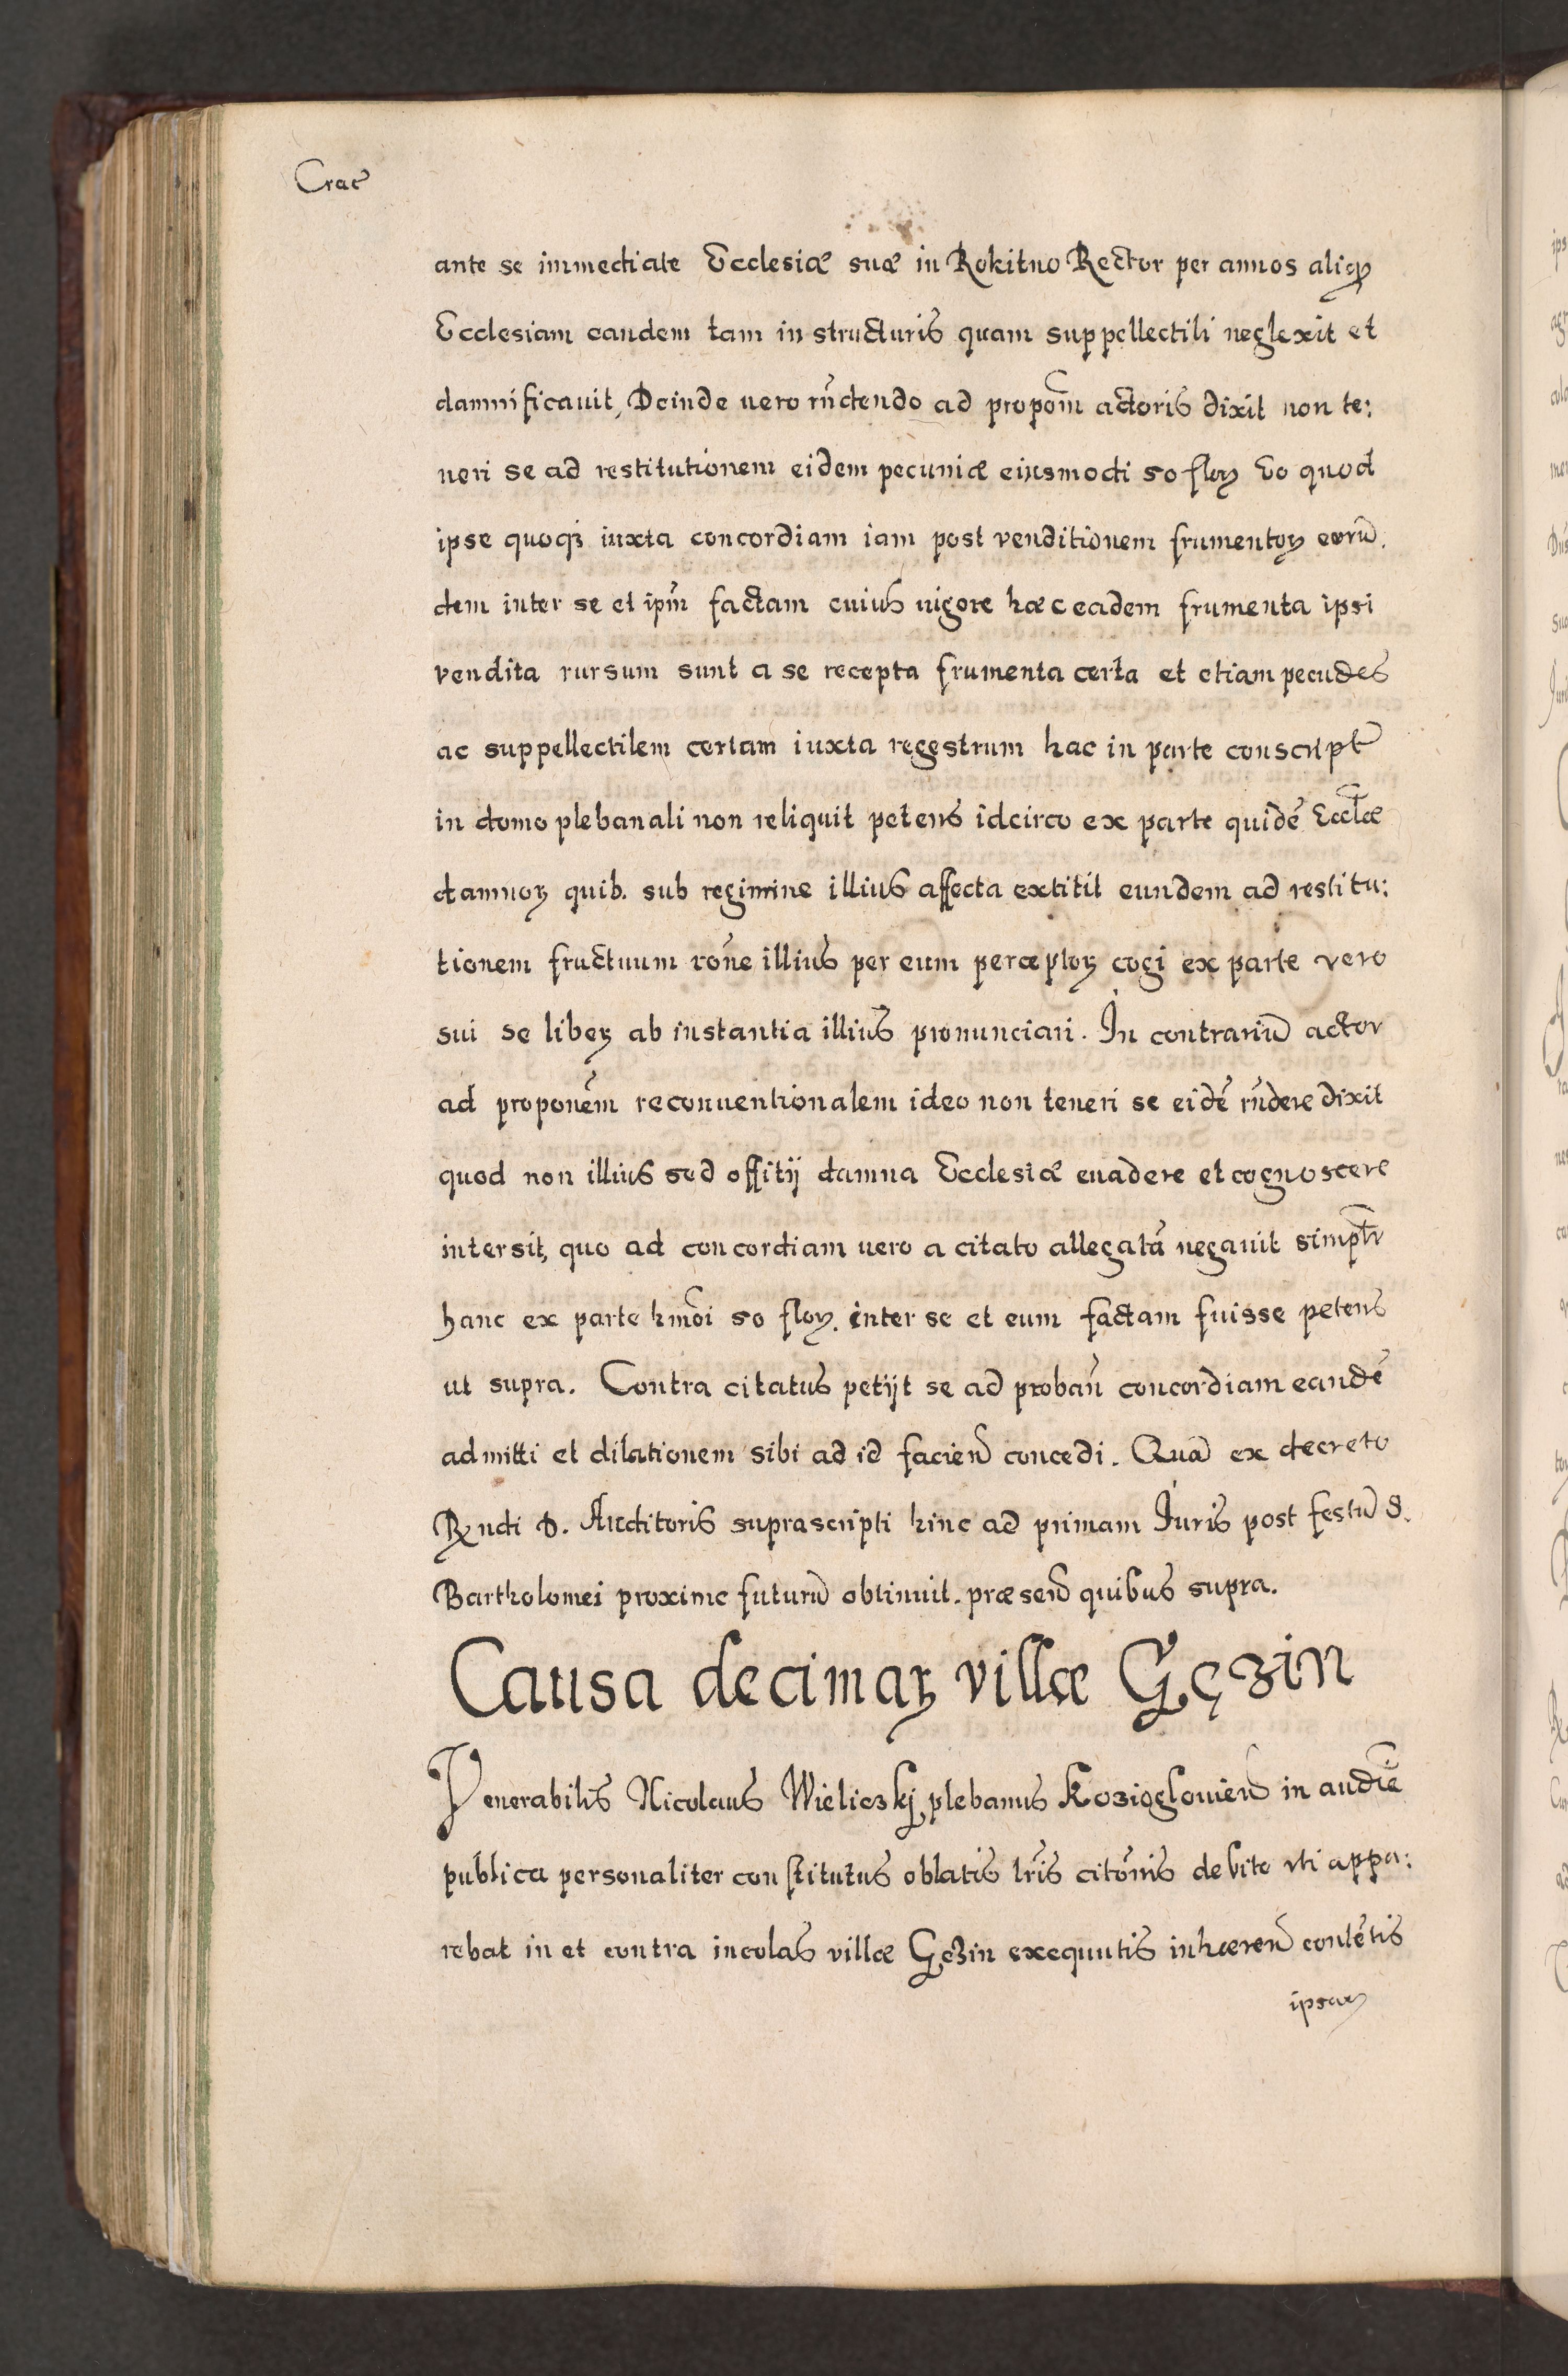 Crac
ante se immediate Ecclesiæ suæ in Rokitno Rector per annos aliqꝫ
Ecclesiam eandem tam in structuris quam suppellectili neglexit et
damnificavit, Deinde vero rñdendo ad propom̃ actoris dixit non te:
neri se ad restitutionem eidem pecuniæ eiusmodi 50 floꝝ Eo quod
ipse quoqꝫ iuxta concordiam iam post venditionem frumentoꝝ eorũ.
dem inter se et ipm̃ factam cuius vigore hæc eadem frumenta ipsi
vendita rursum sunt a se recepta frumenta certa et etiam pecudes
ac suppellectilem certam iuxta regestrum hac in parte conscript̃
in domo plebanali non reliquit petens idcirco ex parte quidẽ Eccl̃æ
damnoꝝ quib. sub regimine illius affecta extitit eundem ad restitu:
tionem fructuum rõne illius per eum perceptoꝝ cogi ex parte vero
sui se libeꝝ ab instantia illius pronunciari. In contrariũ actor
ad proponẽm reconventionalem ideo non teneri se eidẽ rñdere dixit
quod non illius sed offitij damna Ecclesiæ evadere et cognoscere
intersit, quo ad concordiam vero a citato allegatã negavit simplr̃
hanc ex parte hmõi 50 floꝝ. inter se et eum factam fuisse petens
ut supra. Contra citatus petijt se ad probañ concordiam eandẽ
admitti et dilationem sibi ad id facieñ concedi. Quã ex decreto
Rꝝndi D. Auditoris suprascripti hinc ad primam Iuris post festũ S.
Bartholomei proxime futurũ obtinuit. præseñ quibus supra.
Causa decimaꝝ villæ Gęzin
Venerabilis Nicolaus Wieliczkj plebanus Kozioglovieñ in audiẽ
publica personaliter constitutus oblatis lr̃is citõnis debite vti appa:
rebat in et contra incolas villæ Gęzin exequutis inhæreñ contẽtis
ipsaꝝ